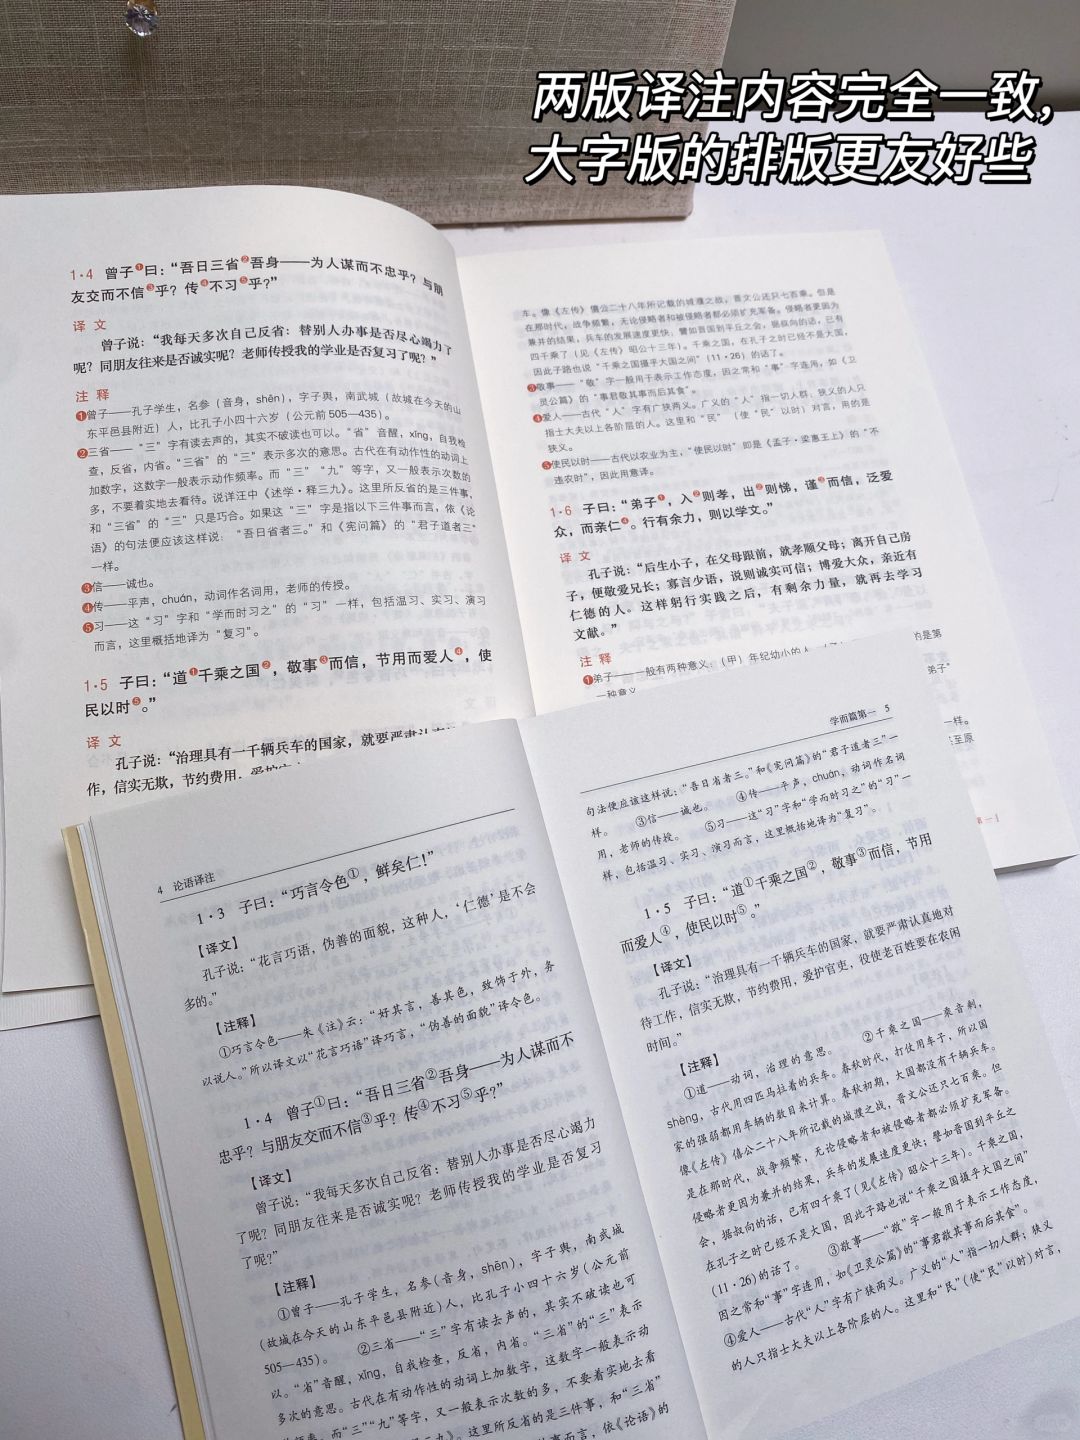 两版译注内容完全一致，
大字版的排版更友好些
1·4 曾子❶曰：“吾日三省❷吾身——为人谋而不忠乎？与朋
友交而不信❸乎？传❹不习❺乎？”
译文
曾子说：“我每天多次自己反省：替别人办事是否尽心竭力了
呢？同朋友往来是否诚实呢？老师传授我的学业是否复习了呢？”
注释
❶曾子——孔子学生，名参（音身，shēn），字子舆，南武城（故城在今天的山
东平邑县附近）人，比孔子小四十六岁（公元前505—435）。
❷三省——“三”字有读去声的，其实不破读也可以。“省”音醒，xǐng，自我检
查，反省，内省。“三省”的“三”表示多次的意思。古代在有动作性的动词上
加数字，这数字一般表示动作频率。而“三”“九”等字，又一般表示次数的
多，不要着实地去看待。说详汪中《述学·释三九》。这里所反省的是三件事，
和“三省”的“三”只是巧合。如果这“三”字是指以下三件事而言，依《论
语》的句法便应该这样说：“吾日省者三。”和《宪问篇》的“君子道者三”
一样。
❸信——诚也。
❹传——平声，chuán，动词作名词用，老师的传授。
❺习——这“习”字和“学而时习之”的“习”一样，包括温习、实习、演习
而言，这里概括地译为“复习”。
1·5 子曰：“道❶千乘之国❷，敬事❸而信，节用而爱人❹，使
民以时❺。”
译文
孔子说：“治理具有一千辆兵车的国家，就要严肃认真
作，信实无欺，节约费用，爱护
车。像《左传》僖公二十八年所记载的城濮之战，晋文公还只七百乘。但是
在那时代，战争频繁，无论侵略者和被侵略者都必须扩充军备。侵略者更因为
兼并的结果，兵车的发展速度更快；譬如晋国到平丘之会，据叔向的话，已有
四千乘了（见《左传》昭公十三年）。千乘之国，在孔子之时已经不是大国，
因此子路也说“千乘之国摄乎大国之间”（11·26）的话了。
❸敬事——“敬”字一般用于表示工作态度，因之常和“事”字连用，如《卫
灵公篇》的“事君敬其事而后其食”。
❹爱人——古代“人”字有广狭两义。广义的“人”指一切人群，狭义的人只
指士大夫以上各阶层的人。这里和“民”（使“民”以时）对言，用的是
狭义。
❺使民以时——古代以农业为主，“使民以时”即是《孟子·梁惠王上》的“不
违农时”，因此用意译。
1·6 子曰：“弟子❶，入❷则孝，出❷则悌，谨❸而信，泛爱
众，而亲仁❹。行有余力，则以学文。”
译文
孔子说：“后生小子，在父母跟前，就孝顺父母；离开自己房
子，便敬爱兄长；寡言少语，说则诚实可信；博爱大众，亲近有
仁德的人。这样躬行实践之后，有剩余力量，就再去学习
文献。”
注释
❶弟子——一般有两种意义：（甲）年纪幼小的
的是第
一种意义
弟子”
一样。
至原
4 论语译注
1·3 子曰：“巧言令色①，鲜矣仁！”
【译文】
孔子说：“花言巧语，伪善的面貌，这种人，‘仁德’是不会
多的。”
【注释】
①巧言令色——朱《注》云：“好其言，善其色，致饰于外，务
以说人。”所以译文以“花言巧语”译巧言，“伪善的面貌”译令色。
1·4 曾子①曰：“吾日三省②吾身——为人谋而不
忠乎？与朋友交而不信③乎？传④不习⑤乎？”
【译文】
曾子说：“我每天多次自己反省：替别人办事是否尽心竭力
了呢？同朋友往来是否诚实呢？老师传授我的学业是否复习
了呢？”
【注释】
①曾子——孔子学生，名参（音身，shēn），字子舆，南武城
（故城在今天的山东平邑县附近）人，比孔子小四十六岁（公元前
505—435）。 ②三省——“三”字有读去声的，其实不破读也可
以。“省”音醒，xǐng，自我检查，反省，内省。“三省”的“三”表示
多次的意思。古代在有动作性的动词上加数字，这数字一般表示动
而“三”“九”等字，又一般表示次数的多，不要着实地去看
这里所反省的是三件事，和“三省”
事而言，依《论语》的
学而篇第一 5
句法便应该这样说：“吾日省者三。”和《宪问篇》的“君子道者三”一
样。 ③信——诚也。 ④传——平声，chuán，动词作名词
用，老师的传授。 ⑤习——这“习”字和“学而时习之”的“习”一
样，包括温习、实习、演习而言，这里概括地译为“复习”。
1·5 子曰：“道①千乘之国②，敬事③而信，节用
而爱人④，使民以时⑤。”
【译文】
孔子说：“治理具有一千辆兵车的国家，就要严肃认真地对
待工作，信实无欺，节约费用，爱护官吏，役使老百姓要在农闲
时间。”
【注释】
①道——动词，治理的意思。 ②千乘之国——乘音剩，
shèng，古代用四匹马拉着的兵车。春秋时代，打仗用车子，所以国
家的强弱都用车辆的数目来计算。春秋初期，大国都没有千辆兵车。
像《左传》僖公二十八年所记载的城濮之战，晋文公还只七百乘。但
是在那时代，战争频繁，无论侵略者和被侵略者都必须扩充军备。
侵略者更因为兼并的结果，兵车的发展速度更快；譬如晋国到平丘之
会，据叔向的话，已有四千乘了（见《左传》昭公十三年）。千乘之国，
在孔子之时已经不是大国，因此子路也说“千乘之国摄乎大国之间”
（11·26）的话了。 ③敬事——“敬”字一般用于表示工作态度，
因之常和“事”字连用，如《卫灵公篇》的“事君敬其事而后其食”。
④爱人——古代“人”字有广狭两义。广义的“人”指一切人群；狭义
的人只指士大夫以上各阶层的人。这里和“民”（使“民”以时）对言，